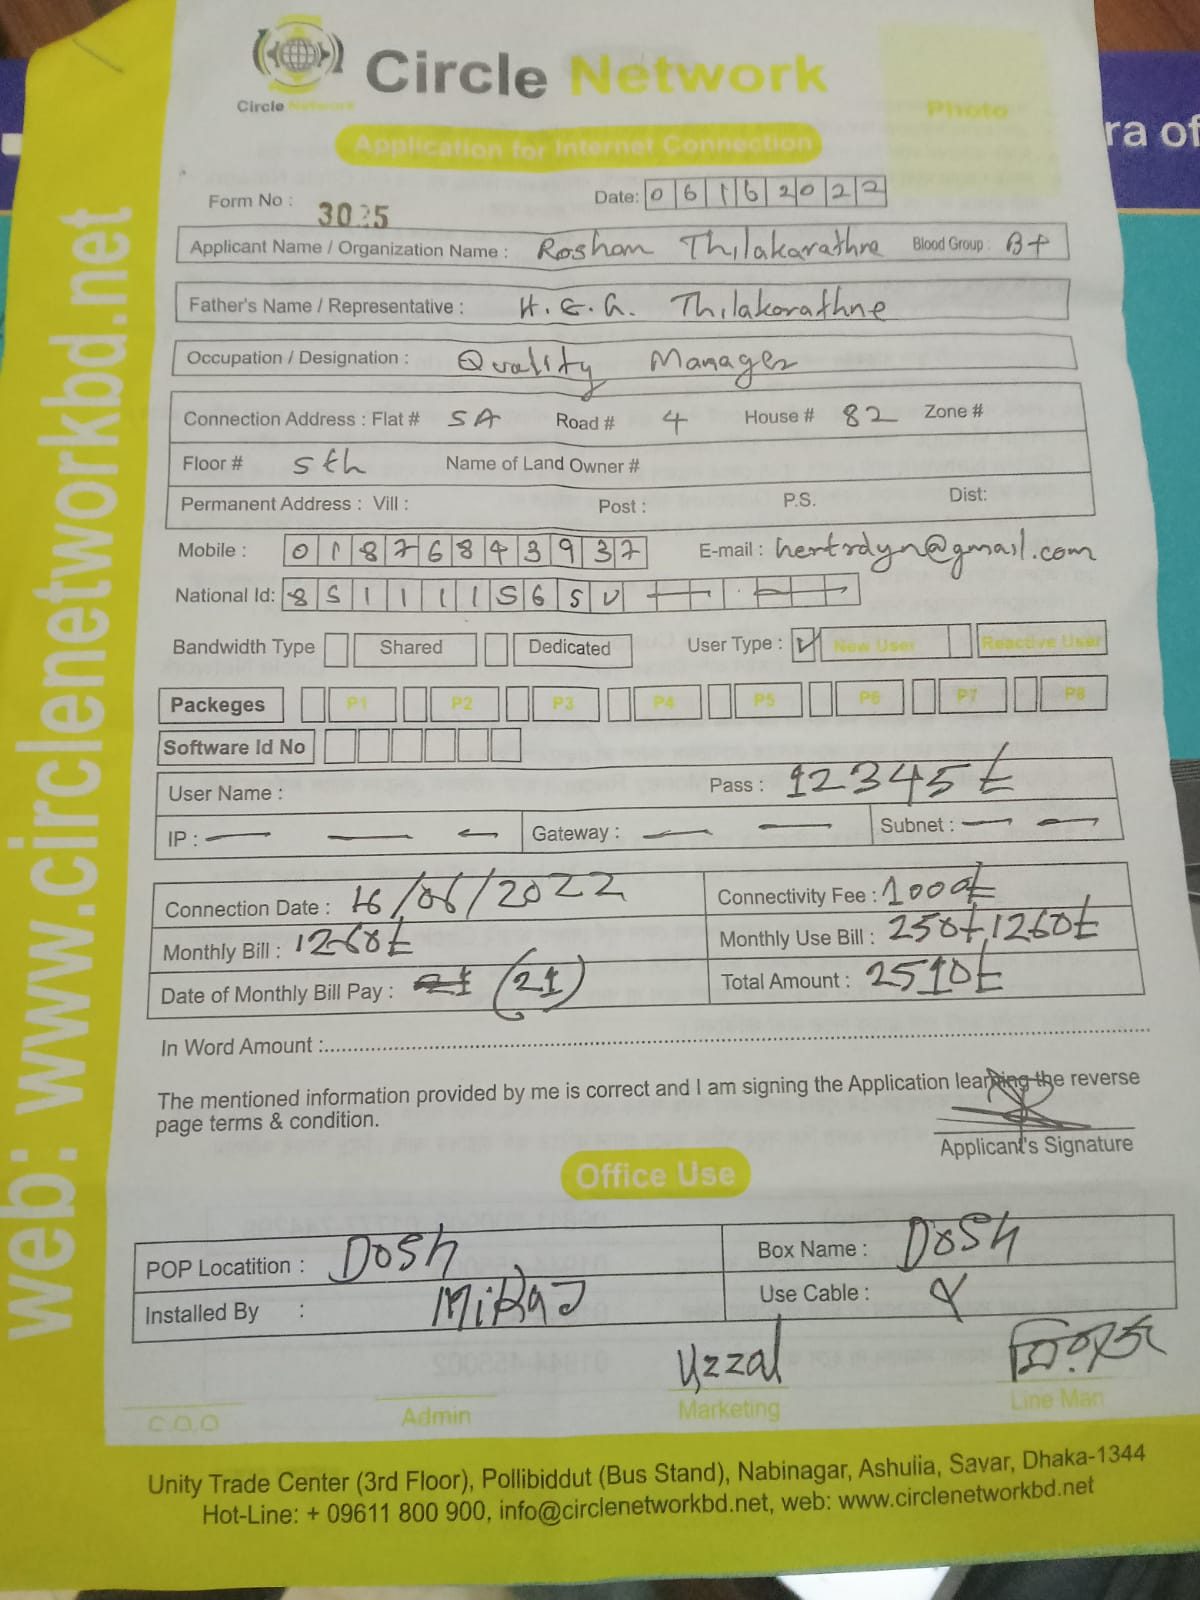 Circle Network
Circle Network
Photo
ra of
Application for Internet Connection
Form No : 3025
Date: 0 6 1 6 2 0 2 2
Applicant Name / Organization Name : Roshan Thilakarathne Blood Group : B+
Father's Name / Representative : H.E.G. Thilakarathne
Occupation / Designation : Quality Manager
Connection Address : Flat # 5A Road # 4 House # 82 Zone #
Floor # 5th Name of Land Owner #
Permanent Address : Vill : Post : P.S. Dist:
Mobile : 0 1 8 7 6 8 4 3 9 3 7 E-mail : hertrdyn@gmail.com
National Id: 8 5 1 1 1 1 5 6 5 V
Bandwidth Type Shared Dedicated User Type : ✓ New User Reactive User
Packeges P1 P2 P3 P4 P5 P6 P7 P8
Software Id No
User Name : Pass : 12345t
IP : Gateway : Subnet :
Connection Date : 16/06/2022 Connectivity Fee : 1000t
Monthly Bill : 1260t Monthly Use Bill : 250t,1260t
Date of Monthly Bill Pay : 21 (21) Total Amount : 2510t
In Word Amount :
The mentioned information provided by me is correct and I am signing the Application learning the reverse
page terms & condition.
Applicant's Signature
Office Use
POP Locatition : DOSH Box Name : DOSH
Installed By : MiRaJ Use Cable :
Uzzal
C.O.O Admin Marketing Line Man
Unity Trade Center (3rd Floor), Pollibiddut (Bus Stand), Nabinagar, Ashulia, Savar, Dhaka-1344
Hot-Line: + 09611 800 900, info@circlenetworkbd.net, web: www.circlenetworkbd.net
web: www.circlenetworkbd.net